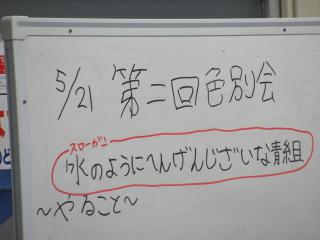 5/21 第二回色別会
スローガン
水のようにへんげんじざいな青組
~やること~